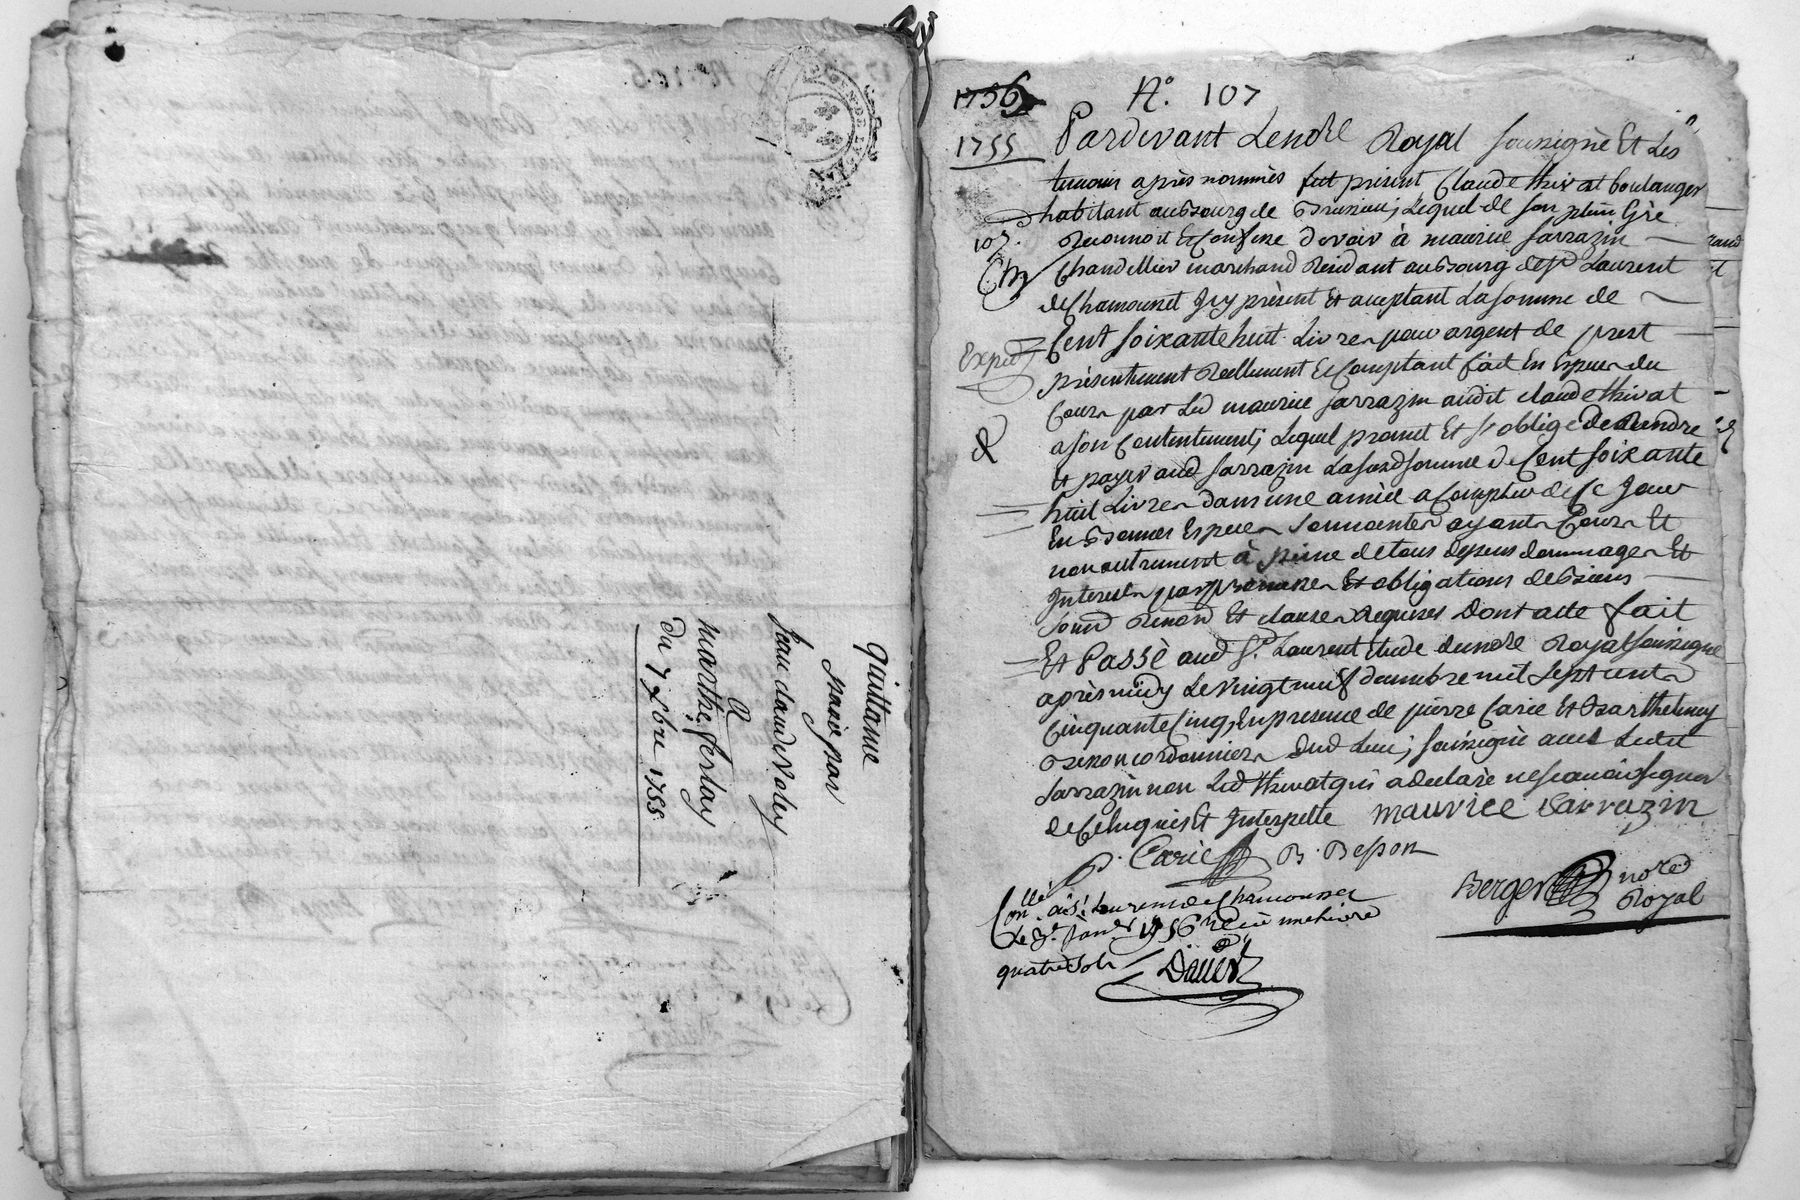 quittance
passé par
Jean claude Voley
a
marthe ferlay
du 7 xbre 1755
1756
N.° 107
1755
Pardevant Le no.re Royal soussigné Et Les
temoins après nommés fut présent Claude thivat boulanger
habitant au Bourg de Brussieu; Lequel de son plein Gré
107.e
Reconnoit Et Confesse devoir à maurice sarrazin
Chandellier marchand Residant au Bourg de St Laurent
de Chamousset Icy présent Et aceptant La somme de
Expéd
Cent soixante huit Livres pour argent de prest
présentement Reellement Et Comptant fait En Espece du
Cours par Led maurice sarrazin audit claude thivat
a son Contentement; Lequel promet Et s'oblige de Rendre
Et payer aud sarrazin La susd somme de Cent soixante
huit Livres dans une année a Compter de Ce Jour
En Bonnes Especes sonnantes ayant Cours Et
non autrement à peine de tous depens dommages Et
Interests par promesses Et obligations de Biens
soumd Renond Et clauses Requises Dont acte fait
Et Passé aud St. Laurent Etude du no.re Royal soussigné
après midy Le vingt neuf decembre mil sept cent
Cinquante Cinq, En presence de pierre Carie Et Barthelemy
Besson cordonniers dud Lieu; soussigné avec Ledit
sarrazin non Led thivat qui a declaré ne sçavoir signer
de Ce Enquis Et Interpellé maurice Sarrazin
P. Carie B. Besson
Berger no.re
Royal
Con.llé à St Laurent de Chamousset
Le 3.e Janv.er 1756 Reçu une livre
quatre sols